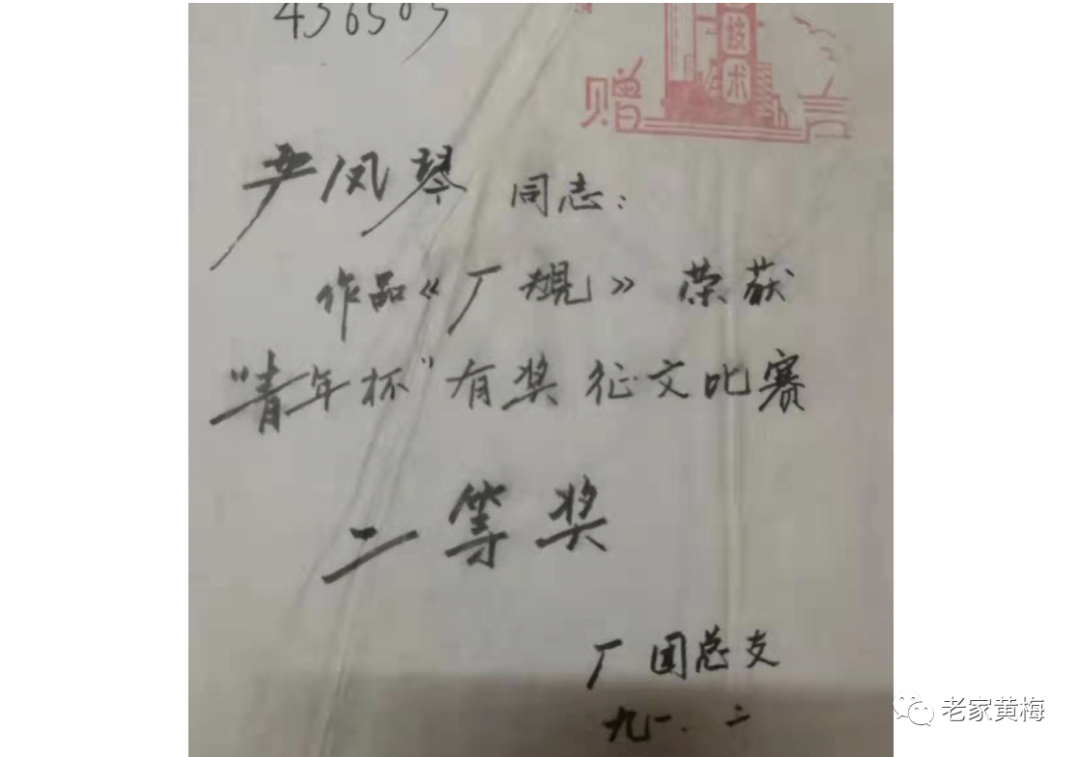 436503
技术
赠
严凤琴 同志：
作品《厂规》荣获
"青年杯"有奖征文比赛
二等奖
厂团总支
九一.二
老家黄梅